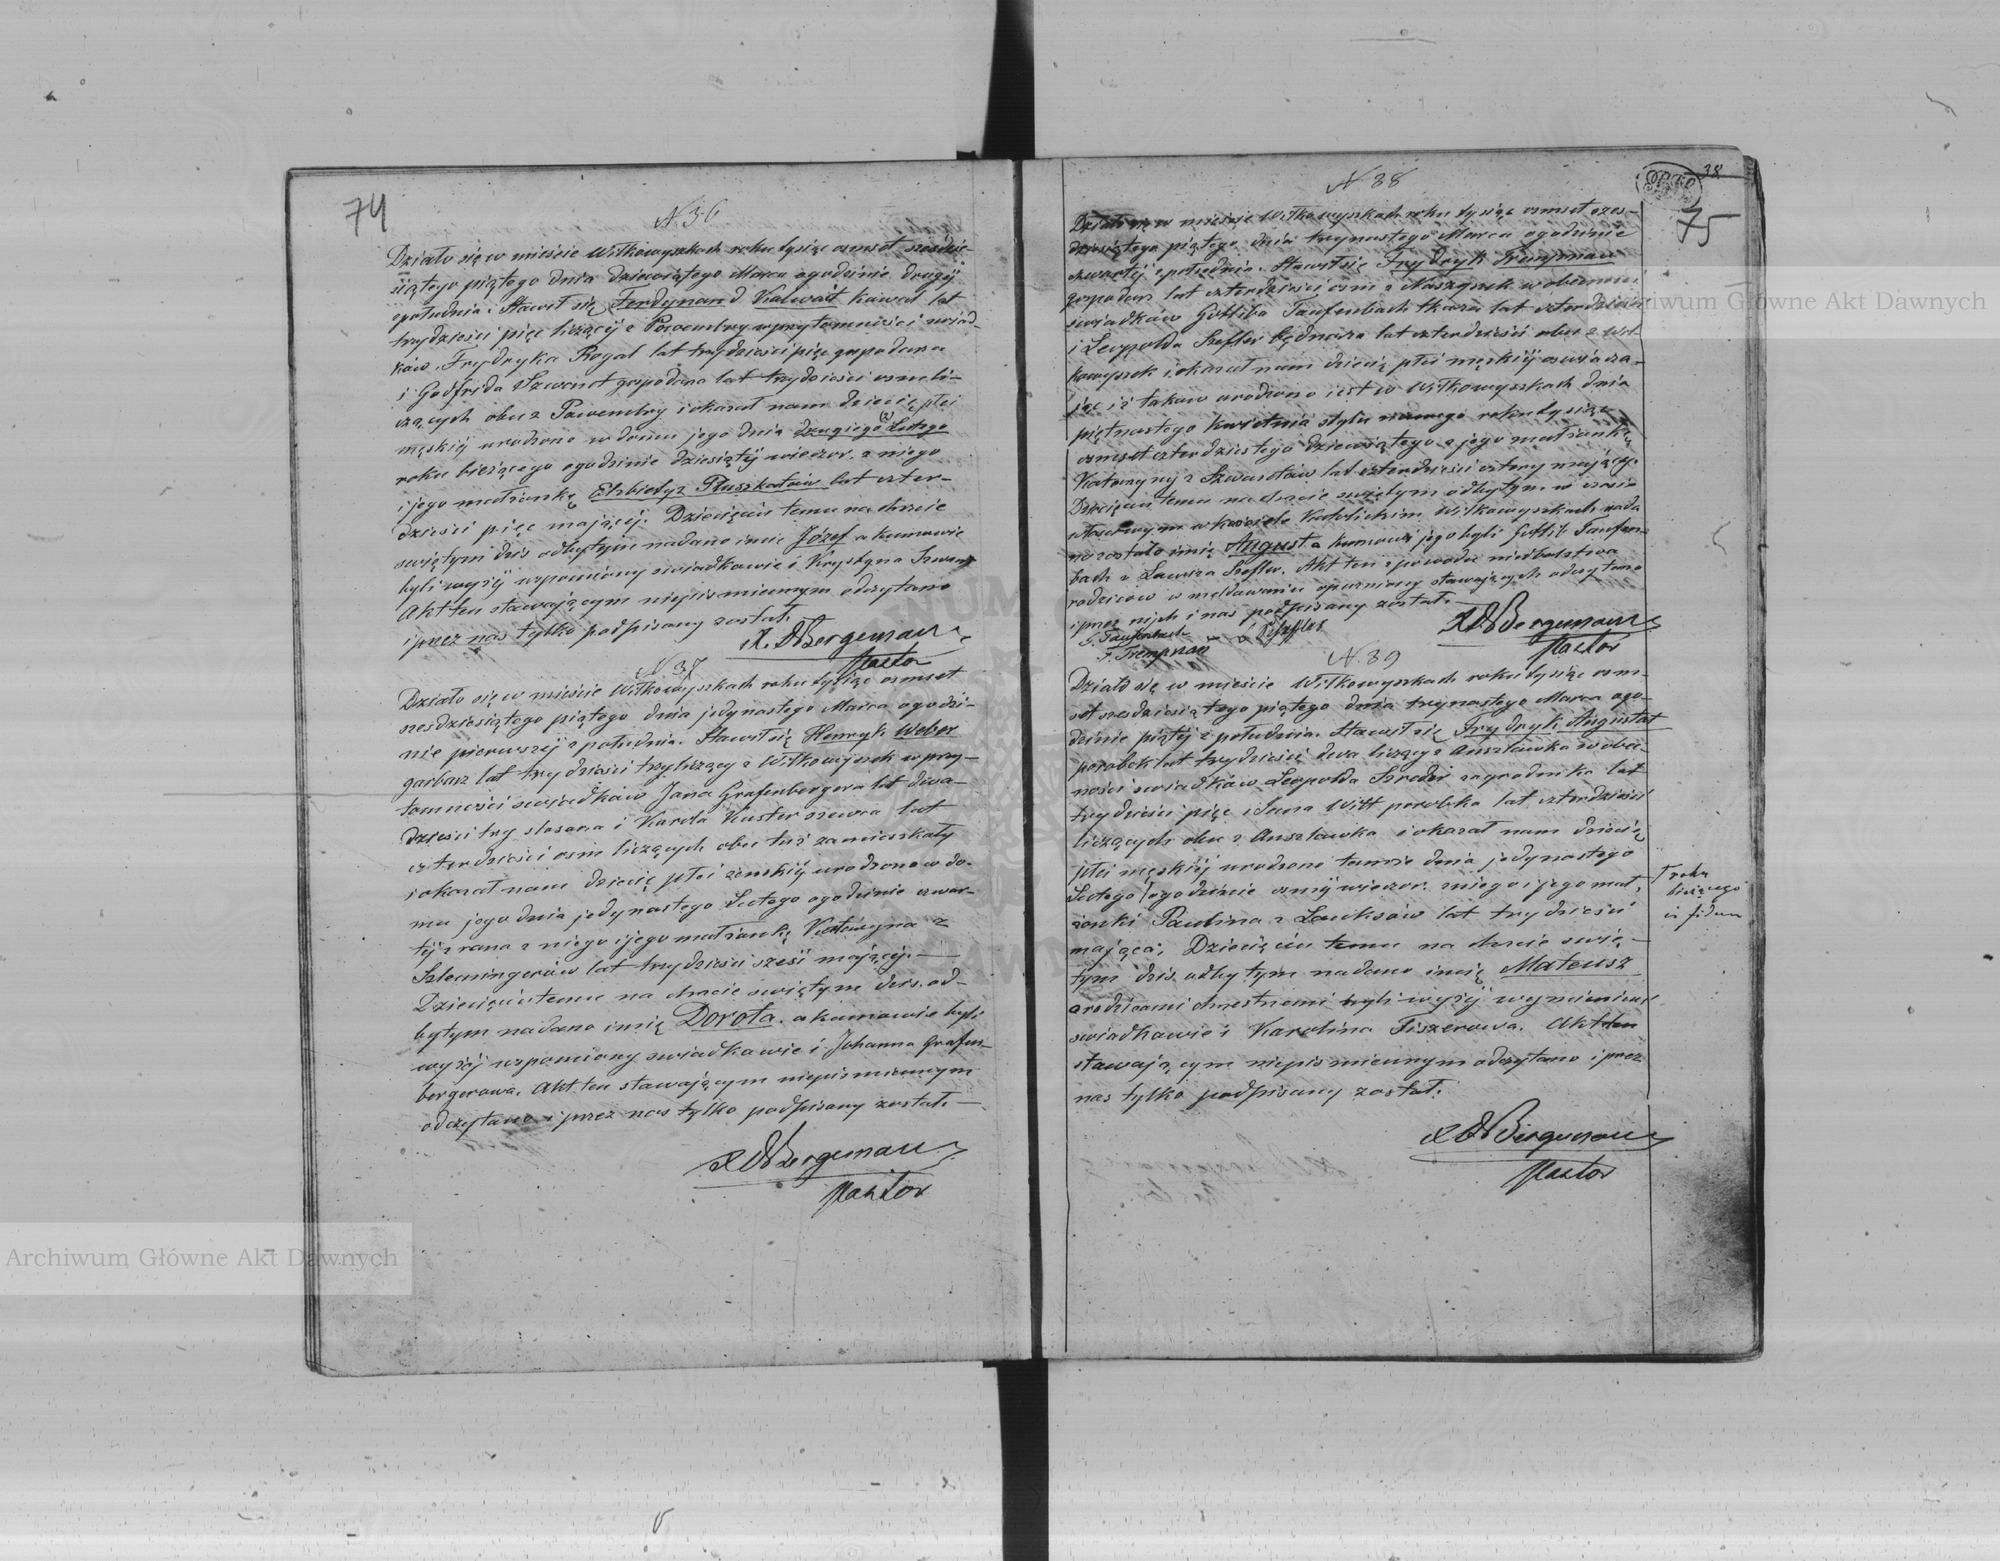 74
N 36
Działo się w mieście Wiłkowyszkach roku tysiąc osmset sześćdzie-
siątego piątego dnia dziewiątego Marca ogodzinie drugiej
zpołudnia. Stawił się Ferdynand Kalwait kawal lat
trzydzieści pięć liczący z Powembry wprzytomności świad-
ków, Frydryka Rogal lat trzydzieści pięć gospodarza
i Godfrida Szwanct gospodarza lat trzydzieści osm li-
czących obu z Powembry i okazał nam dziecię płci
męskiej urodzone w domu jego dnia drugiego (2) Lutego
roku bieżącego ogodzinie dziesiątej wieczor. z niego
i jego małżonki Elżbiety z Pluszkatów lat czter-
dzieści pięć mającej. Dziecięciu temu na chrzcie
swiętym dziś odbytym nadano imie Józef a kumowie
byli wyżej wspomiony swiadkowie i Krystyna Szwanz
Akt ten stawającym niepismiennym odczytano
i przez nas tylko podpisany został.
X. A Bergeman
Pastor
N 37
Działo się w mieście Wiłkowyszkach roku tysiąc osmset
szesdziesiątego piątego dnia jedynastego Marca ogodzi-
nie pierwszej zpołudnia. Stawił się Henryk Weber
garbarz lat trzydzieści trzy liczący z Wiłkowyszek wprzy-
tomności swiadków Jana Grafenbergera lat dwa-
dzieści trzy slosarza i Karola Kuster szewca lat
czterdzieści osm liczących obu tuż zamieszkały
i okazał nam dziecię płci żenskiej urodzone w do-
mu jego dnia jedynastego Lutego ogodzinie czwar-
tej z rana z niego i jego małżonki Katarzyna z
Szlemingerów lat trzydzieści sześć mającej. —
Dziecięciu temu na chrzcie swiętym dziś od-
bytym nadano imię Dorota. a kumowie byli
wyżej wspomiony swiadkowie i Johanna Grafen-
bergerowa. Akt ten stawającym niepismiennym
odczytano i przez nas tylko podpisany został. —
X A Bergeman
Pastor
38
75
N 38
Działo się w mieście Wiłkowyszkach roku tysiąc osmset szes-
dziesiątego piątego dnia trzynastego Marca ogodzinie
czwartej zpołudnia. Stawił się Frydryk Trempnau
gospodarz lat czterdzieści osm z Naszyszek w obecności
swiadków Gottliba Taufenbach tkacza lat czterdzieści
i Leopolda Szefler bednarza lat czterdzieści obu z Wił-
kowyszek i okazał nam dziecię płci męskiej oswiadcza-
jąc iż takowe urodzone iest w Wiłkowyszkach dnia
piętnastego kwietnia stylu nowego roku tysiąc
osmset czterdziestego dziewiątego z jego małżonki
Katarzyny z Szwandtów lat czterdzieści cztery mającej.
Dziecięciu temu na chrzcie swiętym odbytym w czasie
właściwym w kosciele Katolickim Wiłkowyszkach nada-
no zostało imię August a kumowie jego byli Gottlib Taufen-
bach z Lawiza Szefler. Akt ten z powodu niedbalstwa
rodziców w meldowaniu opuzniony stawających odczytano
i przez nich i nas podpisany został.
G. Taufenbach
L Scheffler
F. Trempnau
X A Bergeman
Pastor
N. 39
Działo się w mieście Wiłkowyszkach roku tysiąc osm-
set szesdziesiątego piątego dnia trzynastego Marca ogo-
dzinie piątej z południa. Stawił się Frydryk Augustat
porobek lat trzydzieści dwa liczący z Anszławka w obec-
ności swiadków Leopolda Szreder zagrodnika lat
trzydzieści pięć i Jana Witt porobka lat czterdzieści
liczących obu z Anszławka i okazał nam dziecię
płci męskiej urodzone tamże dnia jedynastego
Lutego / ogodzinie osmej wieczor. z niego i jego mał-
żonki Paulina z Lauksów lat trzydzieści
mająca; Dziecięciu temu na chrzcie swię-
tym dziś odbytym nadano imię Mateusz
a rodzicami chrzestnemi byli wyżej wymienieni
swiadkowie i Karolina Fiszerowa. Akt ten
stawającym niepismiennym odczytano i przez
nas tylko podpisany został.
X A Bergeman
Pastor
T roku
bieżącego
Archiwum Główne Akt Dawnych
Archiwum Główne Akt Dawnych